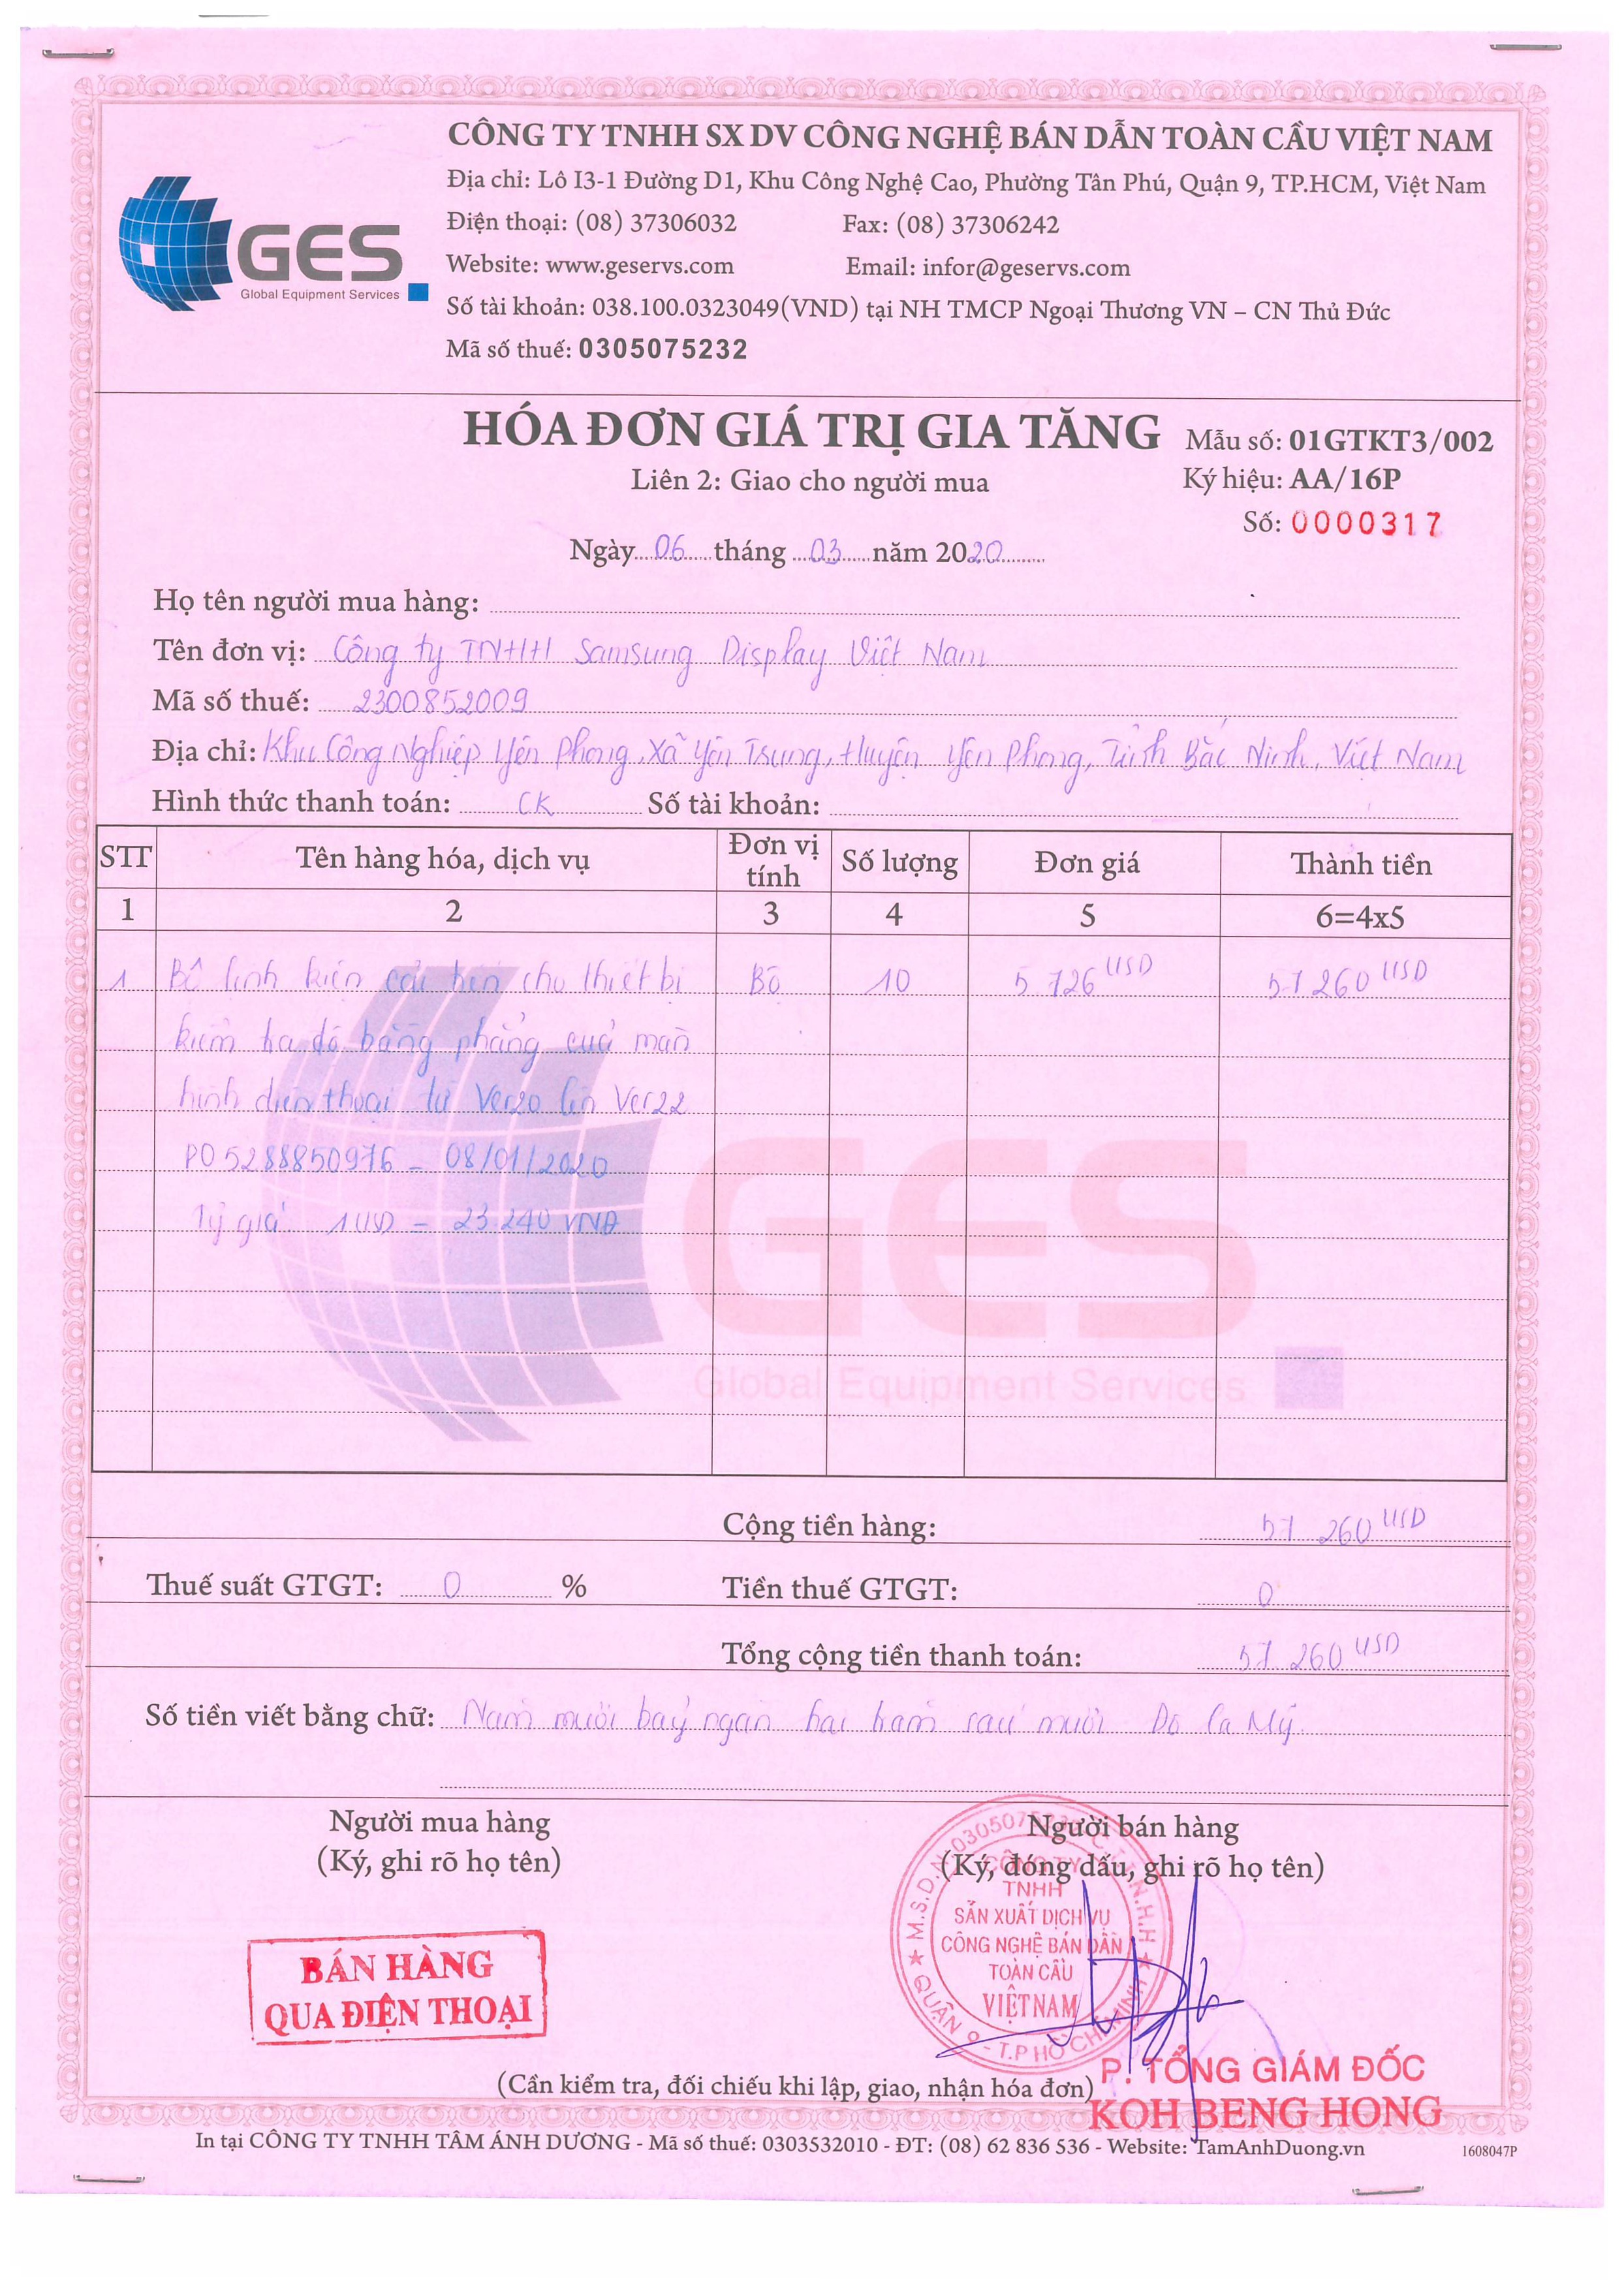 CÔNG TY TNHH SX DV CÔNG NGHỆ BÁN DẪN TOÀN CẦU VIỆT NAM
Địa chỉ: Lô I3-1 Đường D1, Khu Công Nghệ Cao, Phường Tân Phú, Quận 9, TP.HCM, Việt Nam
Điện thoại: (08) 37306032 Fax: (08) 37306242
GES
Global Equipment Services
Website: www.geservs.com Email: infor@geservs.com
Số tài khoản: 038.100.0323049(VND) tại NH TMCP Ngoại Thương VN – CN Thủ Đức
Mã số thuế: 0305075232
HÓA ĐƠN GIÁ TRỊ GIA TĂNG
Mẫu số: 01GTKT3/002
Liên 2: Giao cho người mua
Ký hiệu: AA/16P
Số: 0000317
Ngày 06 tháng 03 năm 2020
Họ tên người mua hàng:
Tên đơn vị: Công ty TNHH Samsung Display Việt Nam
Mã số thuế: 2300852009
Địa chỉ: Khu Công Nghiệp Yên Phong, Xã Yên Trung, Huyện Yên Phong, Tỉnh Bắc Ninh, Việt Nam
Hình thức thanh toán: CK Số tài khoản:
STT Tên hàng hóa, dịch vụ Đơn vị tính Số lượng Đơn giá Thành tiền
1 2 3 4 5 6=4x5
1 Bộ linh kiện cải tiến cho thiết bị Bộ 10 5.726 USD 57.260 USD
kiểm tra độ bằng phẳng của màn
hình điện thoại từ Ver20 lên Ver22
PO 5288850976 - 08/01/2020
Tỷ giá 1 USD = 23.240 VNĐ
GES
Global Equipment Services
Cộng tiền hàng: 57.260 USD
Thuế suất GTGT: 0 % Tiền thuế GTGT: 0
Tổng cộng tiền thanh toán: 57.260 USD
Số tiền viết bằng chữ: Năm mươi bảy ngàn hai trăm sáu mươi Đô la Mỹ.
Người mua hàng
(Ký, ghi rõ họ tên)
Người bán hàng
(Ký, đóng dấu, ghi rõ họ tên)
BÁN HÀNG
QUA ĐIỆN THOẠI
CÔNG TY
TNHH
SẢN XUẤT DỊCH VỤ
CÔNG NGHỆ BÁN DẪN
TOÀN CẦU
VIỆT NAM
QUẬN 9 - T.P HỒ CHÍ MINH
P. TỔNG GIÁM ĐỐC
KOH BENG HONG
(Cần kiểm tra, đối chiếu khi lập, giao, nhận hóa đơn)
In tại CÔNG TY TNHH TÂM ÁNH DƯƠNG - Mã số thuế: 0303532010 - ĐT: (08) 62 836 536 - Website: TamAnhDuong.vn
1608047P